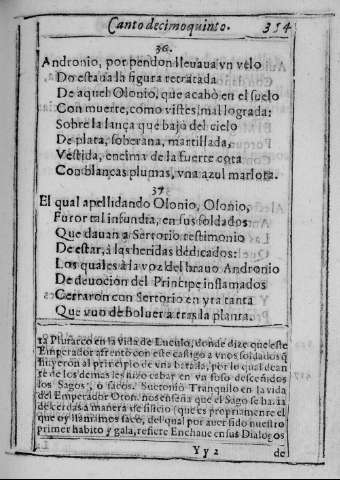 Canto decimoquinto. 354
36.
Andronio, por pendon lleuaua vn velo
Do estaua la figura retratada
De aquel Olonio, que acabò en el suelo
Con muerte, como vistes, mal lograda:
Sobre la lança que bajò del cielo
De plata, soberana, martillada,
Vestida, encima de la fuerte cota
Con blancas plumas, vna azul marlota.
37
El qual apellidando Olonio, Olonio,
Furor tal infundia, en sus soldados
Que dauan a Sertorio testimonio
De estar, à las heridas dedicados:
Los quales à la voz del brauo Andronio
De deuocion del Principe inflamados
Cerraron con Sertorio en yra tanta
Que vuo de boluer a tras la planta.
ta Plutarco en la vida de Luculo, donde dize que este
Emperador afrentò con este castigo a vnos soldados q̃
huyeron al principio de vna batalla, por lo qual dean
te de los demas les hizo cabar en vn foso desceñidos
los Sagos, o sacos. Suetonio Tranquilo en la vida
del Emperador Oton. nos enseña que el Sago se hazia
de cerdas a manera de silicio (que es propriamente el
que oy llamamos saco, del qual por auer sido nuestro
primer habito y gala, refiere Enchaue en sus Dialogos
Yy2 de